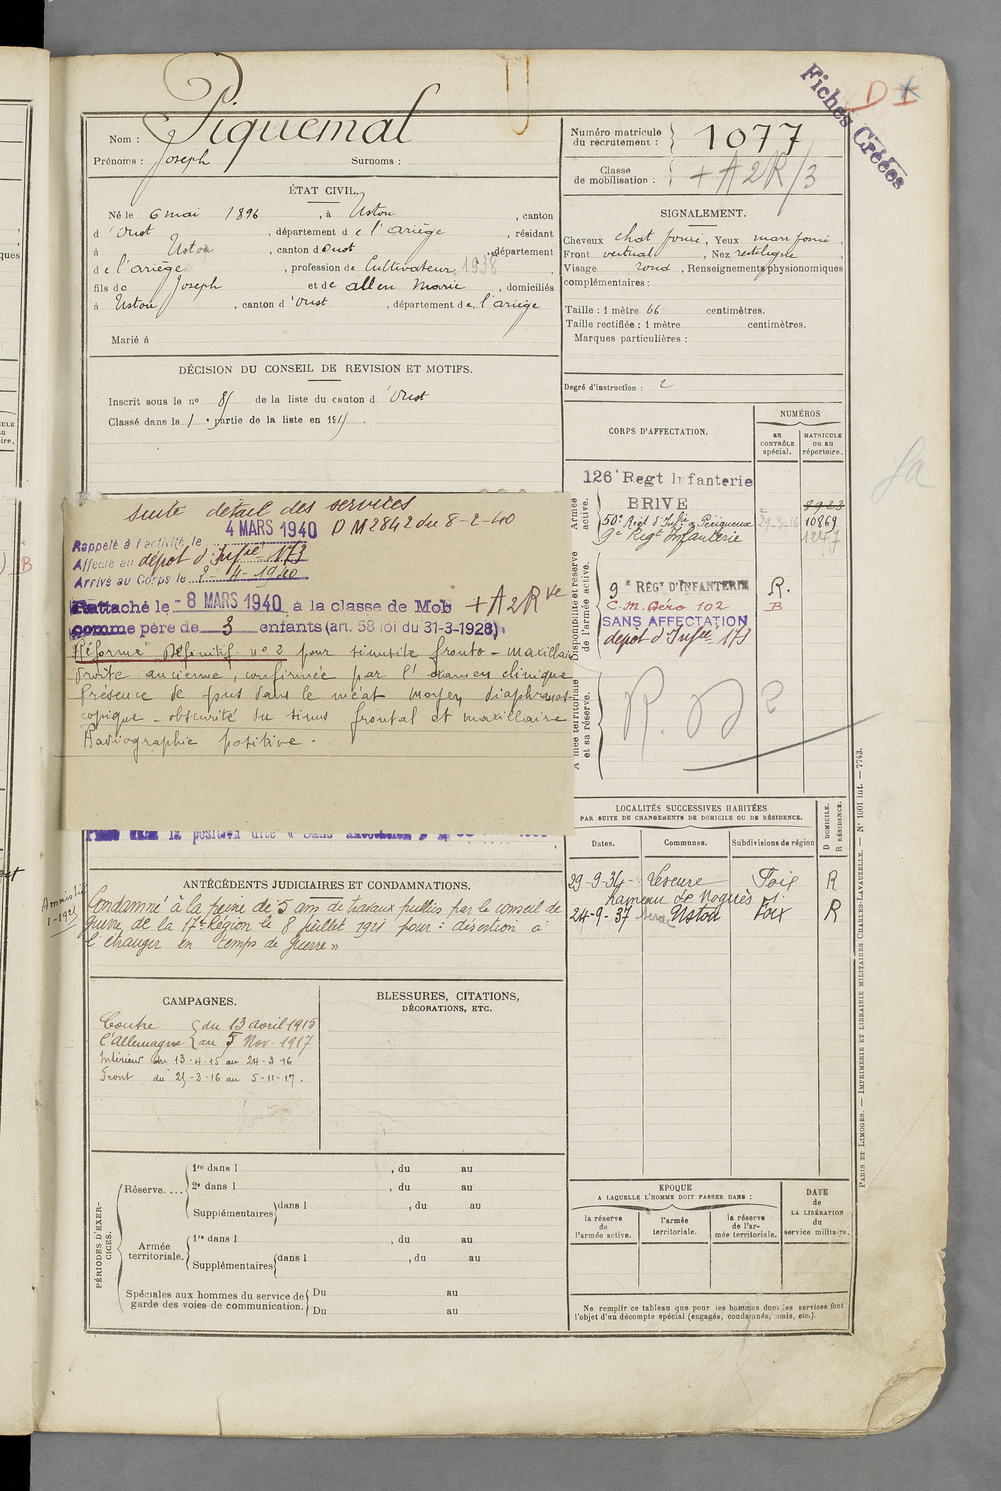 Fiches Créées
D I
Nom : Piquemal
Prénoms : Joseph Surnoms :
Numéro matricule du recrutement : 1077
Classe de mobilisation : + A 2 R/3
ÉTAT CIVIL.
Né le 6 mai 1896, à Ustou, canton
d'Oust, département de l'Ariège, résidant
à Ustou, canton d'Oust, département
de l'ariège, profession de Cultivateur 1938
fils de Joseph et de allen Marie, domiciliés
à Ustou, canton d'Oust, département de l'ariège
Marié à
SIGNALEMENT.
Cheveux chat foncé, Yeux marr foncé,
Front vertical, Nez rectiligne,
Visage rond, Renseignements physionomiques
complémentaires :
Taille : 1 mètre 66 centimètres.
Taille rectifiée : 1 mètre centimètres.
Marques particulières :
Degré d'instruction : 2
DÉCISION DU CONSEIL DE REVISION ET MOTIFS.
Inscrit sous le no 85 de la liste du canton d'Oust
Classé dans la 1e partie de la liste en 1915.
Suite détail des services
Rappelé à l'activité le 4 MARS 1940 D M 2842 du 8-2-40
Affecté au dépot d'Infie 173
Arrivé au Corps le 2-4-1940
Rattaché le - 8 MARS 1940 à la classe de Mob + A 2 R
comme père de 3 enfants (art. 58 loi du 31-3-1928)
Réformé Définitif no 2 pour sinusite fronto-maxillaire
droite ancienne, confirmée par l'examen clinique
Présence de pus dans le méat moyen, diaphanos-
copique - obscurité du sinus frontal et maxillaire
Radiographie positive
CORPS D'AFFECTATION.
NUMÉROS
au CONTRÔLE spécial.
MATRICULE ou au répertoire.
Armée active.
126e Regt Infanterie
BRIVE 8923
50e Régt d'Infie Périgueux 29-3-16 10869
9e Régt Infanterie 1247
Disponibilité et réserve de l'armée active.
9e RÉGT D'INFANTERIE R.
C.M. Aéro 102 B
SANS AFFECTATION
dépot d'Infie 173
Armée territoriale et sa réserve.
R. D 2
LOCALITÉS SUCCESSIVES HABITÉES
PAR SUITE DE CHANGEMENTS DE DOMICILE OU DE RÉSIDENCE.
Dates. Communes. Subdivisions de région D DOMICILE. R RÉSIDENCE.
29-9-34 Foix R
Hameau de Noguès
24-9-37 Ustou Foix R
ANTÉCÉDENTS JUDICIAIRES ET CONDAMNATIONS.
Condamné à la peine de 5 ans de travaux publics par le conseil de
guerre de la 17e Région le 8 juillet 1921 pour : désertion à
l'étranger en temps de guerre »
CAMPAGNES.
Contre l'Allemagne du 13 avril 1915
au 5 Nov. 1917
Intérieur du 13-4-15 au 24-3-16
Front du 25-3-16 au 5-11-17.
BLESSURES, CITATIONS,
DÉCORATIONS, ETC.
PÉRIODES D'EXERCICES.
Réserve....
1re dans l , du au
2e dans l , du au
Supplémentaires dans l , du au
Armée territoriale.
1re dans l , du au
Supplémentaires dans l , du au
Spéciales aux hommes du service de garde des voies de communication.
Du au
Du au
EPOQUE
A LAQUELLE L'HOMME DOIT PASSER DANS :
la réserve de l'armée active.
l'armée territoriale.
la réserve de l'armée territoriale.
DATE de LA LIBÉRATION du service militaire.
Ne remplir ce tableau que pour les hommes dont les services font
l'objet d'un décompte spécial (engagés, condamnés, omis, etc.).
PARIS ET LIMOGES. — IMPRIMERIE ET LIBRAIRIE MILITAIRES CHARLES-LAVAUZELLE. — N° 1001 int. — 7743.